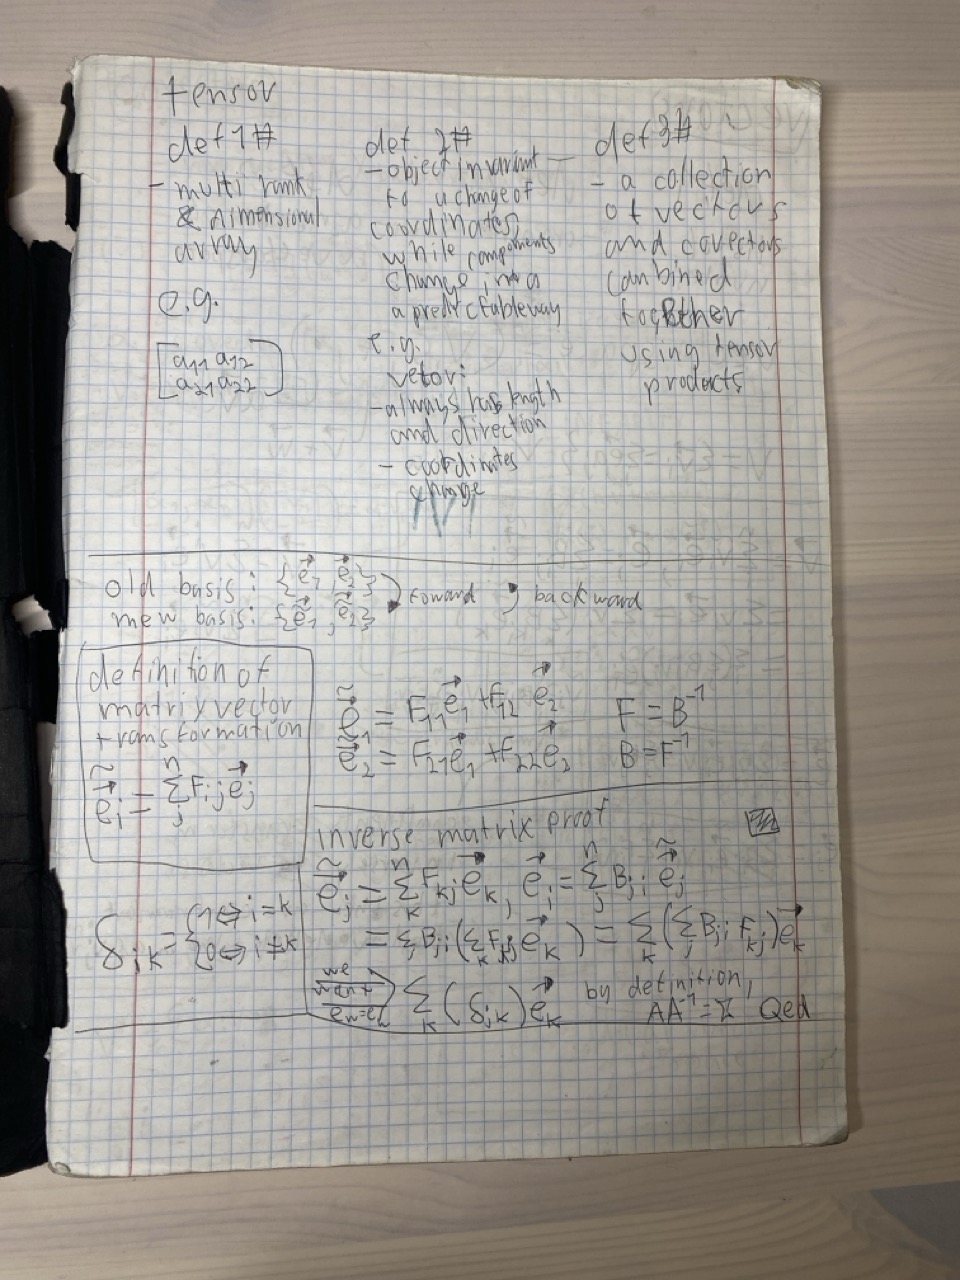 tensor
def 1#
- multi rank
& dimensional
array
e.g.
[a11 a12
a21 a22]
def 2#
- object invariant
to a change of
coordinates,
while components
change in a
a predictable way
e.g.
vetor:
- always has length
and direction
- coordinates
change
def 3#
- a collection
of vectors
and covectors
combined
together
using tensor
products
old basis: {e⃗1, e⃗2} forward ; backward
new basis: {ẽ⃗1, ẽ⃗2}
definition of
matrix vector
transformation
ẽ⃗i = Σ_j^n Fij e⃗j
ẽ⃗1 = F11 e⃗1 + F12 e⃗2 F = B⁻¹
ẽ⃗2 = F21 e⃗1 + F22 e⃗2 B = F⁻¹
inverse matrix proof
ẽ⃗j = Σ_k^n Fkj e⃗k, e⃗i = Σ_j^n Bji ẽ⃗j
= Σ Bji (Σ_k Fkj e⃗k) = Σ_k (Σ_j Bji Fkj) e⃗k
we
want
Σ_k (δik) e⃗k by definition,
AA⁻¹ = Σ Qed
δik = {1 ⇔ i=k
{0 ⇔ i≠k